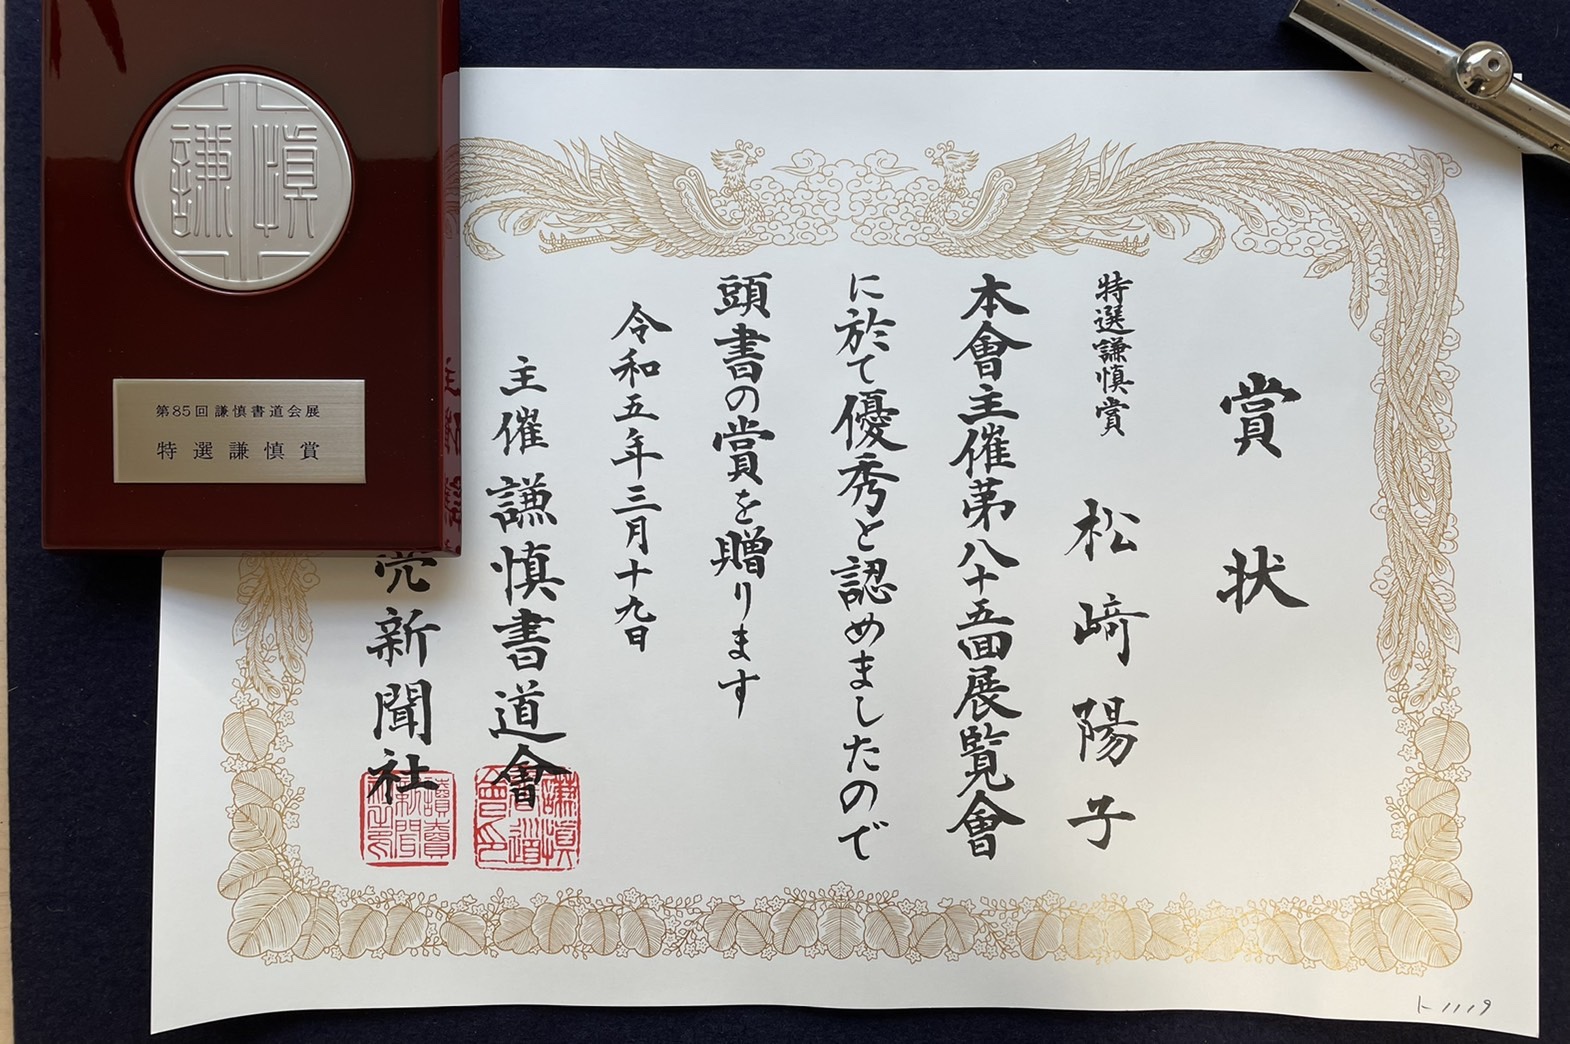 賞状
特選謙慎賞 松﨑陽子
本會主催第八十五回展覧會
に於て優秀と認めましたので
頭書の賞を贈ります
令和五年三月十九日
主催 謙慎書道會
売新聞社
謙慎
書道
會印
讀賣
新聞
謙慎
第85回 謙慎書道会展
特選謙慎賞
ト1119